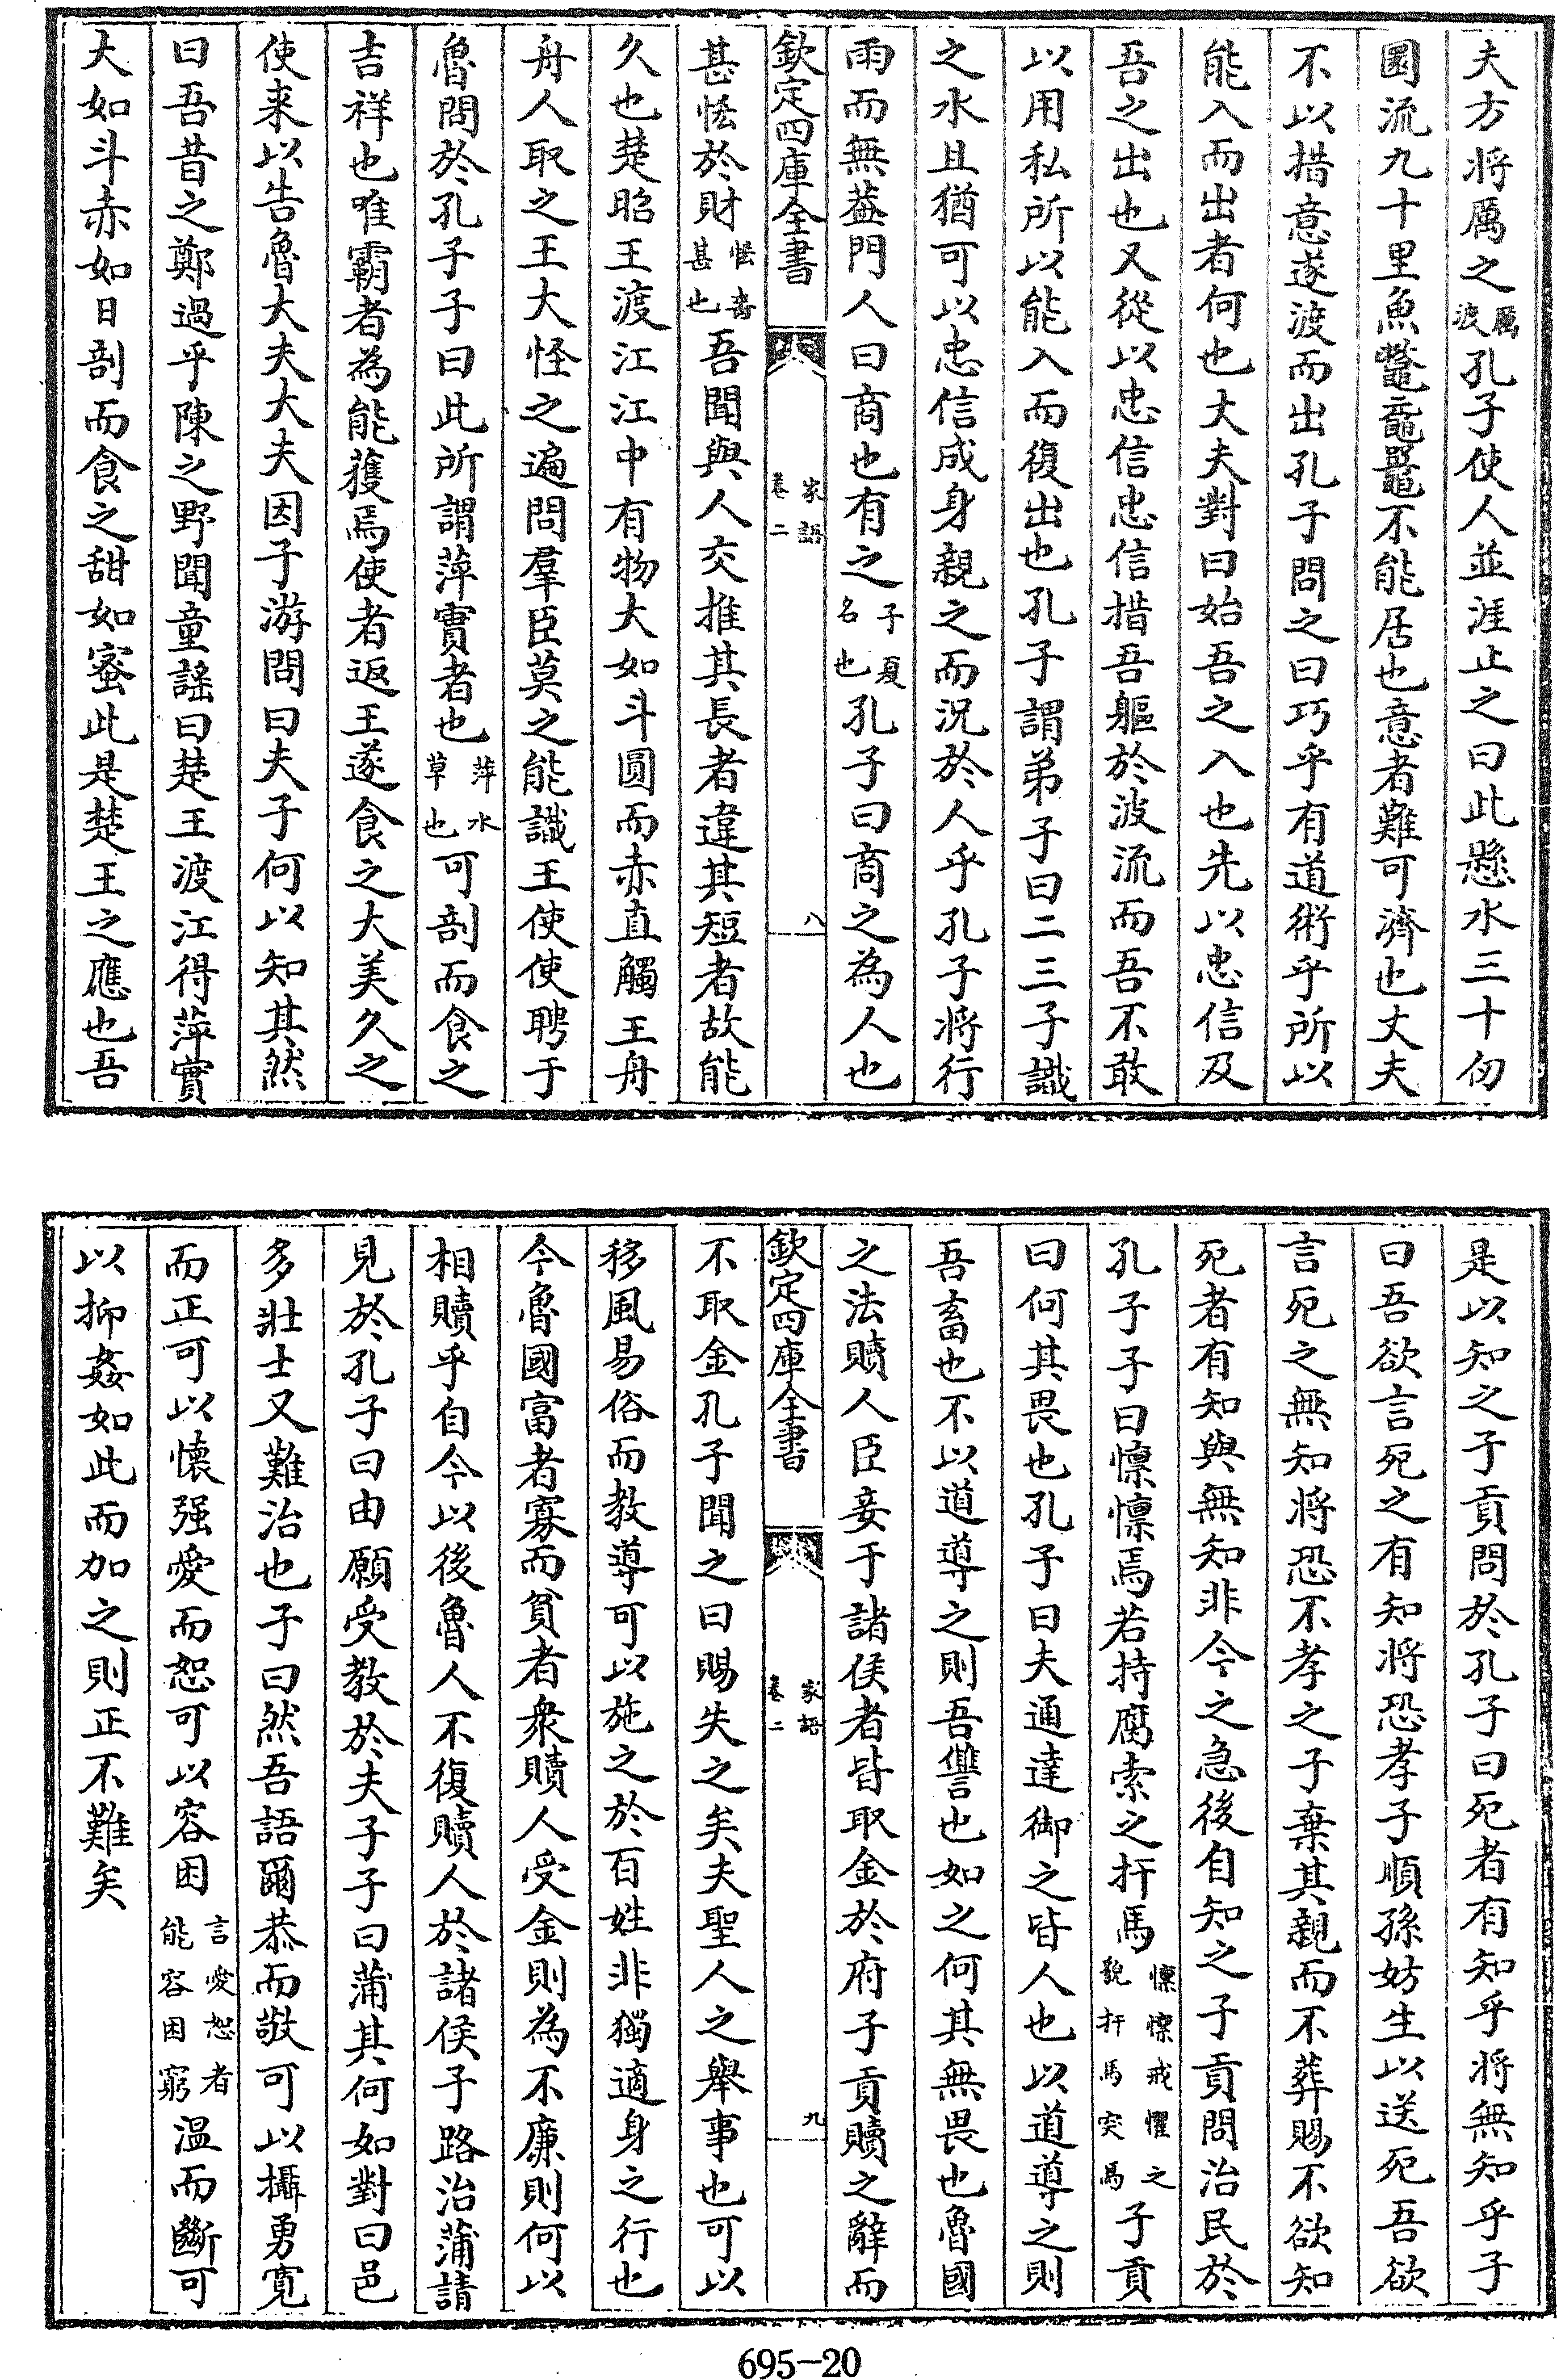 夫方將厲之厲渡孔子使人並涯止之曰此懸水三十仞
圜流九十里魚鼈黿鼉不能居也意者難可濟也丈夫
不以措意遂渡而出孔子問之曰巧乎有道術乎所以
能入而出者何也丈夫對曰始吾之入也先以忠信及
吾之出也又從以忠信忠信措吾軀於波流而吾不敢
以用私所以能入而復出也孔子謂弟子曰二三子識
之水且猶可以忠信成身親之而況於人乎孔子將行
雨而無葢門人曰商也有之子夏名也孔子曰商之為人也
欽定四庫全書 家語卷二 八
甚恡於財恡嗇甚也吾聞與人交推其長者違其短者故能
久也楚昭王渡江江中有物大如斗圓而赤直觸王舟
舟人取之王大怪之遍問羣臣莫之能識王使使聘于
魯問於孔子子曰此所謂萍實者也萍水草也可剖而食之
吉祥也唯霸者為能獲焉使者返王遂食之大美久之
使来以告魯大夫大夫因子游問曰夫子何以知其然
曰吾昔之鄭過乎陳之野聞童謡曰楚王渡江得萍實
大如斗赤如日剖而食之甜如蜜此是楚王之應也吾
是以知之子貢問於孔子曰死者有知乎將無知乎子
曰吾欲言死之有知將恐孝子順孫妨生以送死吾欲
言死之無知將恐不孝之子棄其親而不葬賜不欲知
死者有知與無知非今之急後自知之子貢問治民於
孔子子曰懔懔焉若持腐索之扞馬懔懔戒懼之貌扞馬突馬子貢
曰何其畏也孔子曰夫通達御之皆人也以道導之則
吾畜也不以道導之則吾讐也如之何其無畏也魯國
之法贖人臣妾于諸侯者皆取金於府子貢贖之辭而
欽定四庫全書 家語卷二 九
不取金孔子聞之曰賜失之矣夫聖人之舉事也可以
移風易俗而教導可以施之於百姓非獨適身之行也
今魯國富者寡而貧者衆贖人受金則為不廉則何以
相贖乎自今以後魯人不復贖人於諸侯子路治蒲請
見於孔子曰由願受教於夫子子曰蒲其何如對曰邑
多壯士又難治也子曰然吾語爾恭而敬可以攝勇寛
而正可以懷强愛而恕可以容困言愛恕者能容困窮温而斷可
以抑姦如此而加之則正不難矣
695-20